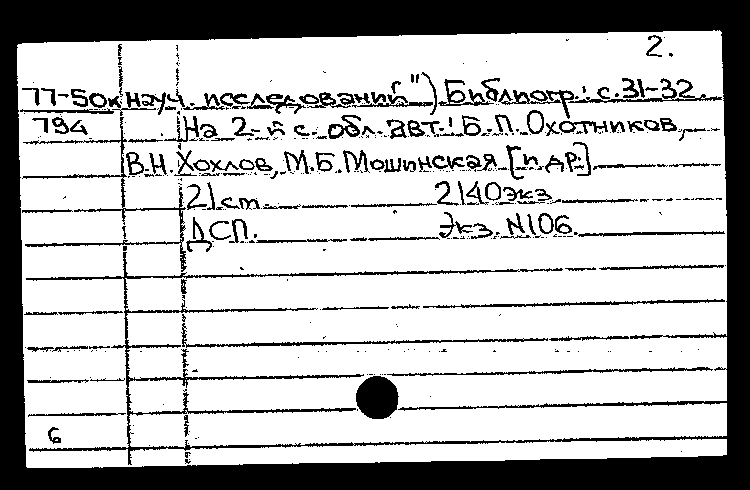 2.
77-50к науч. исследований") Библиогр.: с. 31-32.
794 На 2-й с. обл. авт.: Б.П. Охотников,
В.Н. Хохлов, М.Б. Мошинская [и др.].
21 см. 2140 экз.
ДСП. Экз. N106.
6